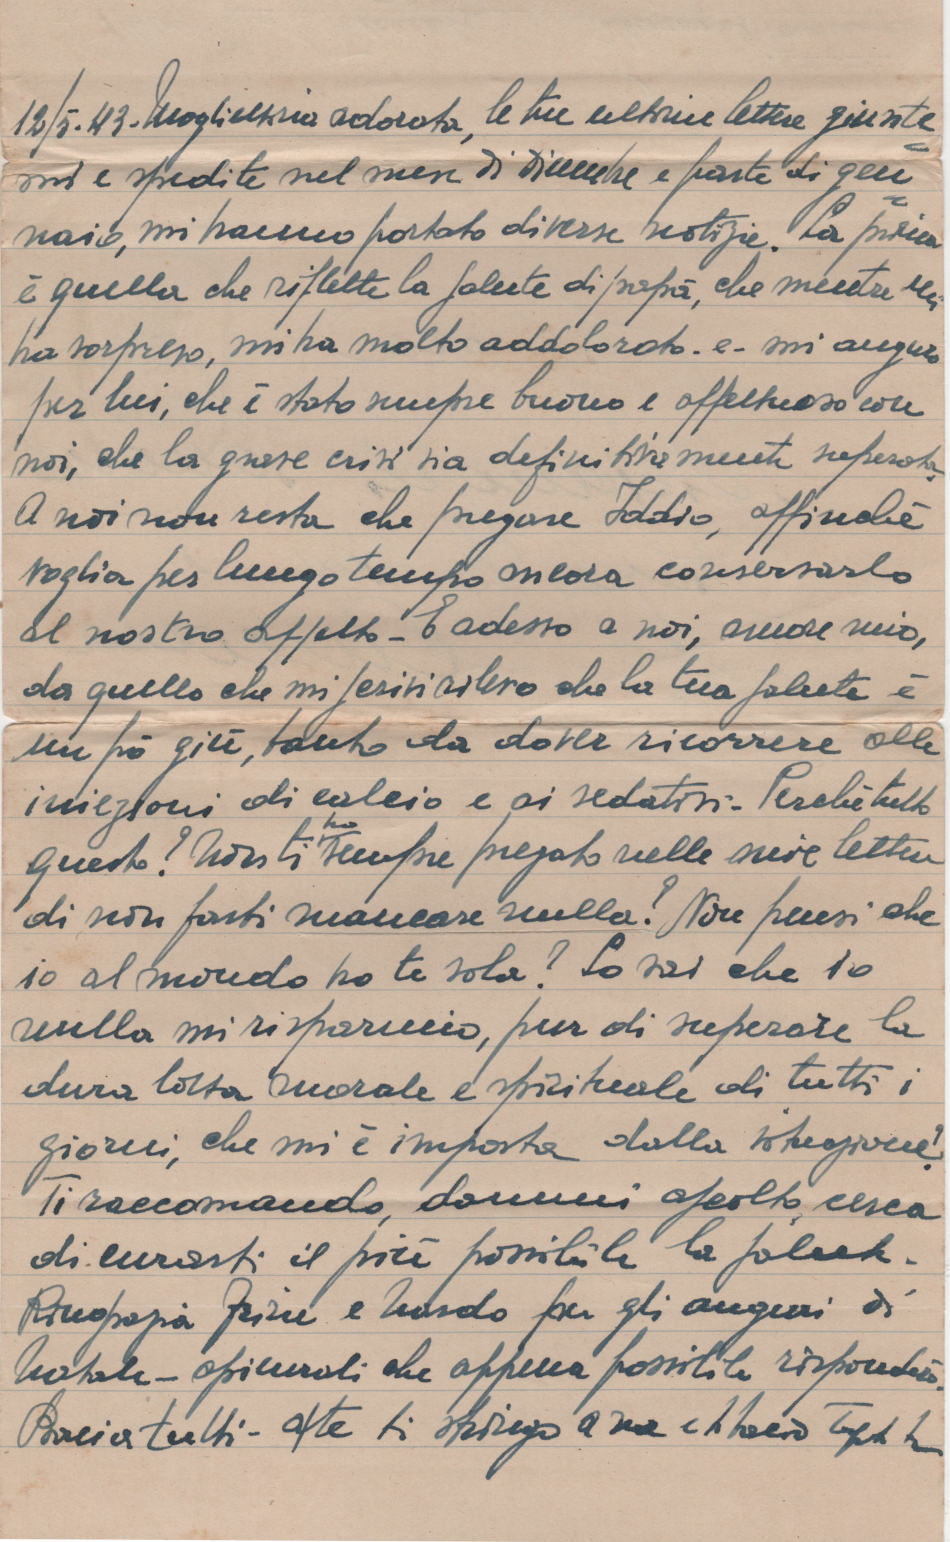 12/5.43. Mogliettina adorata, le tue ultime lettere giunte=
mi e spedite nel mese di dicembre e parte di gen=
naio, mi hanno portato diverse notizie. La prima
è quella che riflette la salute di papà, che mentre mi
ha sorpreso, mi ha molto addolorato. e - mi auguro
per lui, che è stato sempre buono e affettuoso con
noi, che la grave crisi sia definitivamente superata.
A noi non resta che pregare Iddio, affinchè
voglia per lungo tempo ancora conservarlo
al nostro affetto - E adesso a noi, amore mio,
da quello che mi scrivi rilevo che la tua salute è
un pò giù, tanto da dover ricorrere alle
iniezioni di calcio e ai sedativi - Perchè tutto
questo? Non ti ho sempre pregato nelle mie lettere
di non farti mancare nulla? Non pensi che
io al mondo ho te sola? Lo sai che io
nulla mi risparmio, pur di superare la
dura lotta morale e spirituale di tutti i
giorni, che mi è imposta dalla situazione?
Ti raccomando, dammi ascolto, cerca
di curarti il più possibile la salute -
Ringrazia e per gli auguri di
Natale - che appena possibile risponderò.
Bacia tutti - A te ti stringo a me e ti bacio